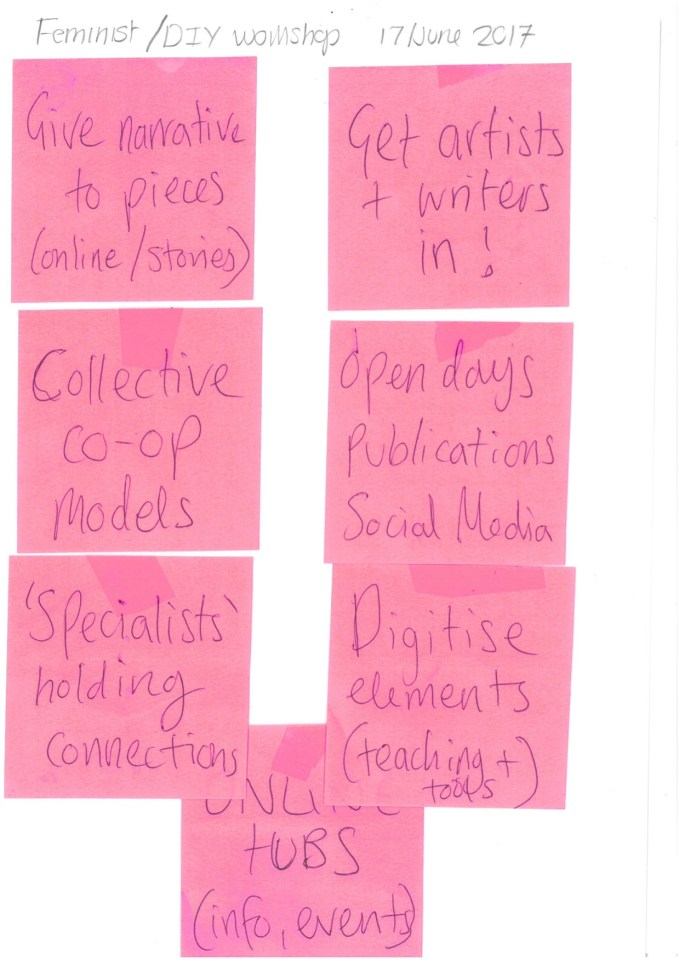 Feminist / DIY workshop 17/June 2017
Give narrative
to pieces
(online / stories)
Get artists
+ writers
in !
Collective
co-op
models
Open days
Publications
Social Media
'Specialists'
holding
connections
Digitise
elements
(teaching +
tools)
ONLINE
HUBS
(info, events)